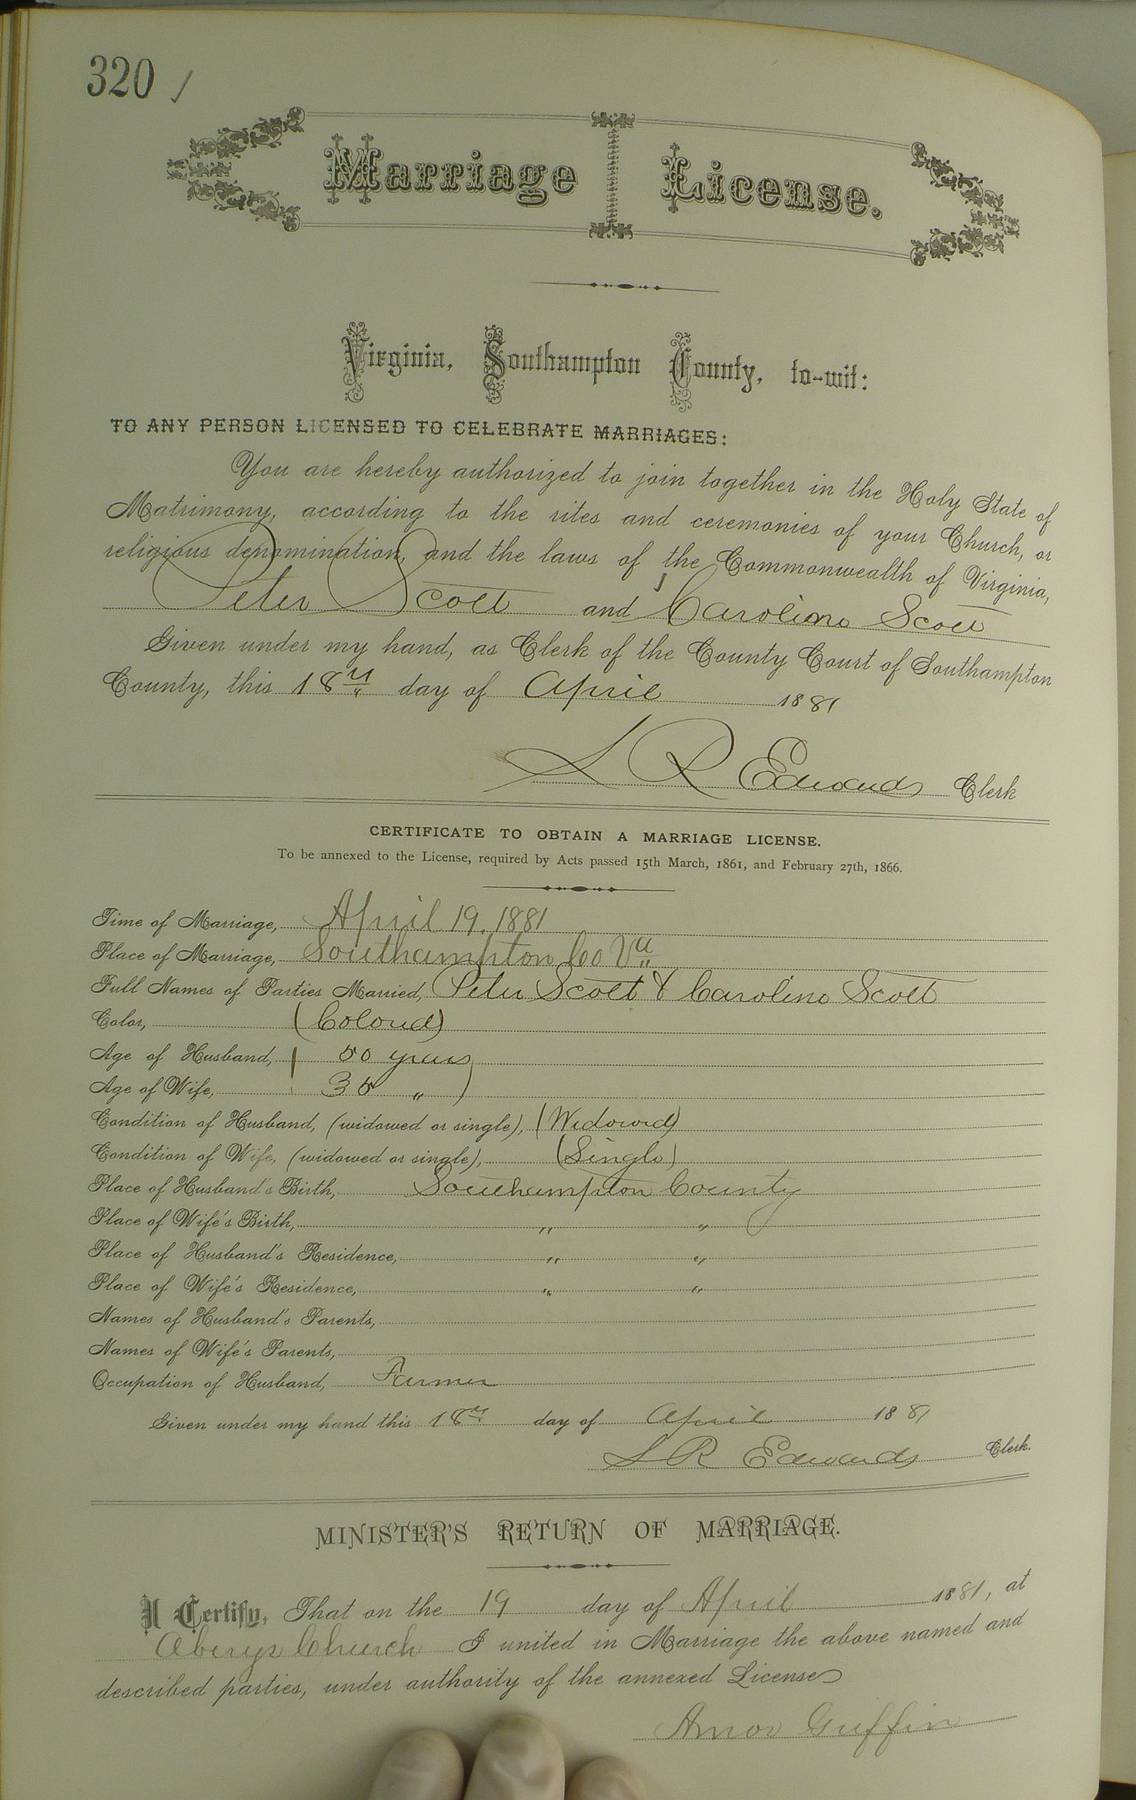 320 /
Marriage License.
Virginia, Southampton County, to-wit:
TO ANY PERSON LICENSED TO CELEBRATE MARRIAGES:
You are hereby authorized to join together in the Holy State of
Matrimony, according to the rites and ceremonies of your Church, or
religious denomination, and the laws of the Commonwealth of Virginia,
Peter Scott and Caroline Scott
Given under my hand, as Clerk of the County Court of Southampton
County, this 18th day of April 1881
L R Edwards Clerk
CERTIFICATE TO OBTAIN A MARRIAGE LICENSE.
To be annexed to the License, required by Acts passed 15th March, 1861, and February 27th, 1866.
Time of Marriage, April 19. 1881
Place of Marriage, Southampton Co Va
Full Names of Parties Married, Peter Scott & Caroline Scott
Color, (Colored)
Age of Husband, 50 years
Age of Wife, 35 "
Condition of Husband, (widowed or single), (Widowed)
Condition of Wife, (widowed or single), (Single)
Place of Husband's Birth, Southampton County
Place of Wife's Birth, " "
Place of Husband's Residence, " "
Place of Wife's Residence, " "
Names of Husband's Parents,
Names of Wife's Parents,
Occupation of Husband, Farmer
Given under my hand this 18th day of April 1881
L R Edwards Clerk.
MINISTER'S RETURN OF MARRIAGE.
I Certify, That on the 19 day of April 1881, at
Church I united in Marriage the above named and
described parties, under authority of the annexed License
Griffin